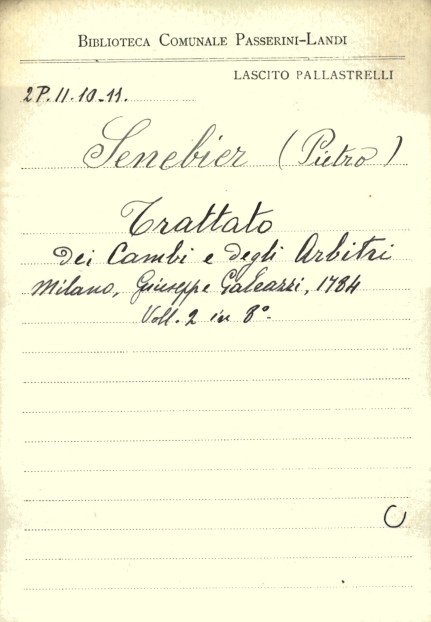 BIBLIOTECA COMUNALE PASSERINI-LANDI
LASCITO PALLASTRELLI
2P.11.10-11.
Senebier (Pietro)
Trattato
dei Cambi e degli Arbitri
Milano, Giuseppe Galeazzi, 1784
Voll. 2 in 8°.
C